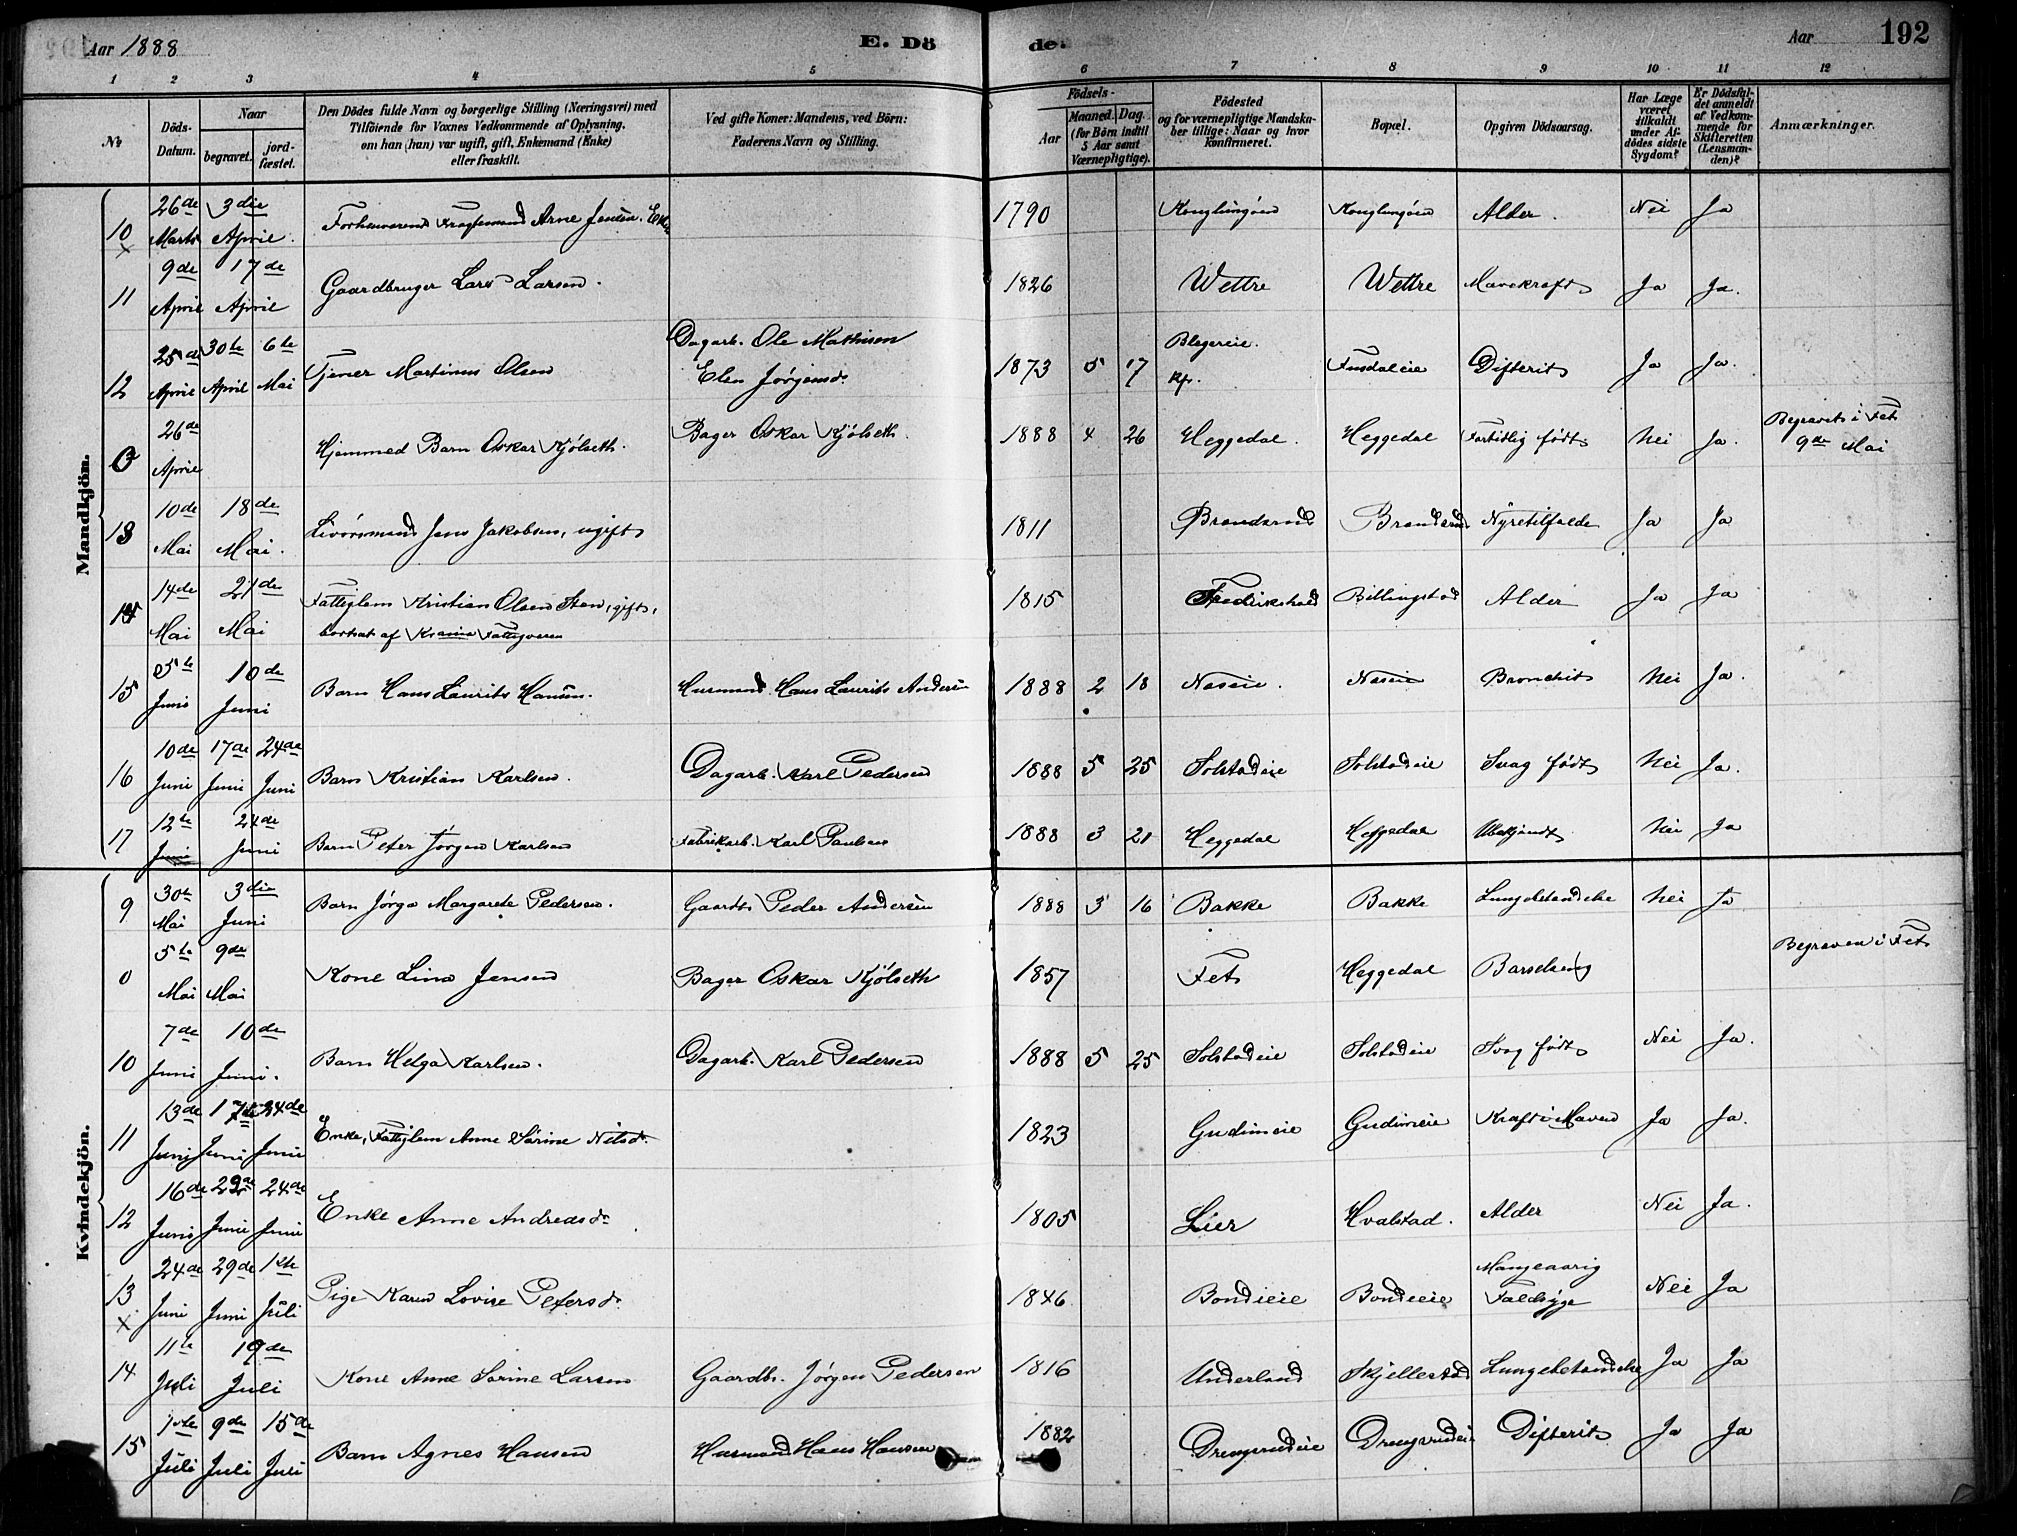 Aar 1888
E. Dö
de.
Aar
192
1 2 3 4 5 6 7 8 9 10 11 12
No
Döds-Datum.
Naar
begravet.
jord-fæstet.
Den Dödes fulde Navn og borgerlige Stilling (Næringsvei) med
Tilföiende for Voxnes Vedkommende af Oplysning,
om han (hun) var ugift, gift, Enkemand (Enke)
eller fraskilt.
Ved gifte Koner: Mandens, ved Börn:
Faderens Navn og Stilling.
Födsels-
Aar
Maaned. Dag.
(for Börn indtil
5 Aar samt
Værnepligtige).
Födested
og for værnepligtige Mandska-
ber tillige: Naar og hvor
konfirmeret.
Bopæl.
Opgiven Dödsaarsag.
Har Læge
været
tilkaldt
under Af-
dödes sidste
Sygdom?
Er Dödsfal-
det anmeldt
af Vedkom-
mende for
Skifteretten
(Lensman-
den)?
Anmærkninger.
Mandkjön.
10 26de Marts 3die April. Forhenværend Fragtemand Arne Jensen. Enk 1790 Konglungøen Konglungøen Alder. Nei Ja
11 9de April 17de April Gaardbruger Lars Larsen. 1826 Wettre Wettre Mavekræft Ja Ja.
12 25de April 30te April 6te Mai Tjener Martinus Olsen Dagarb. Ole Mathisen
Elen Jørgensd. 1873 5 17 Blegereie.
Kfr. Fusdaleie Difterit Ja Ja.
0 26de April Hjemmed Barn Oskar Kjølseth. Bager Oskar Kjølseth. 1888 4 26 Heggedal. Heggedal Fortidlig født Nei Ja. Begravet i Fet
9de Mai
13 10de Mai 18de Mai. Livørsmand Jens Jakobsen, ugift 1811 Brendsrud Brendsrud Nyretilfælde Ja Ja
14 14de Mai 21de Mai Fattiglem Kristian Olsen Sten, gift,
bortsat af Krania Fattigvæsen 1815 Fredrikshald Billingstad Alder Ja Ja
15 5te Juni 10de Juni Barn Hans Laurits Hansen. Husmand Hans Laurits Andersen 1888 2 18 Neseie. Neseie Bronchit Nei Ja.
16 10de Juni 17de Juni 24de Juni Barn Kristian Karlsen. Dagarb. Karl Pedersen 1888 5 25 Solstadeie Solstadeie Svag født Nei Ja.
17 12te Juni 24de Juni Barn Peter Jørgen Karlsen Fabrikarb. Karl Paulsen 1888 3 21 Heggedal Heggedal Ubekjendt Nei Ja
Kvindekjön.
9 30te Mai 3die Juni Barn Jørga Margarete Pedersen. Gaardb. Peder Andersen 1888 3 16 Bakke Bakke Lungebetændelse Nei Ja
0 5te Mai 9de Mai Kone Lina Jensen Bager Oskar Kjølseth 1857 Fet Heggedal Barselseng Begraven i Fet
10 7de Juni 10de Juni. Barn Helga Karlsen. Dagarb. Karl Pedersen 1888 5 25 Solstadeie Solstadeie Svag født Nei Ja.
11 13de Juni 17de Juni 24de Juni Enke, Fattiglem Anne Sørine Nilsd. 1823 Gudimeie Gudimeie Kræft i Maven Ja Ja.
12 16de Juni 22de Juni 24de Juni Enke Anne Andreasd. 1805 Lier Hvalstad. Alder Nei Ja.
13 24de Juni 29de Juni 1ste Juli Pige Karen Lovise Petersd. 1846 Bondieie Bondieie Mangeaarig
Faldsyge Nei Ja
14 11te Juli 19de Juli Kone Anne Sørine Larsen Gaardbr. Jørgen Pedersen 1816 Underland Skjellestad Lungebetændelse Ja Ja
15 1ste Juli 9de Juli 15de Juli Barn Agnes Hansen Husmand Hans Hansen 1882 Drengsrudeie Drengsrudeie Difterit Ja Ja